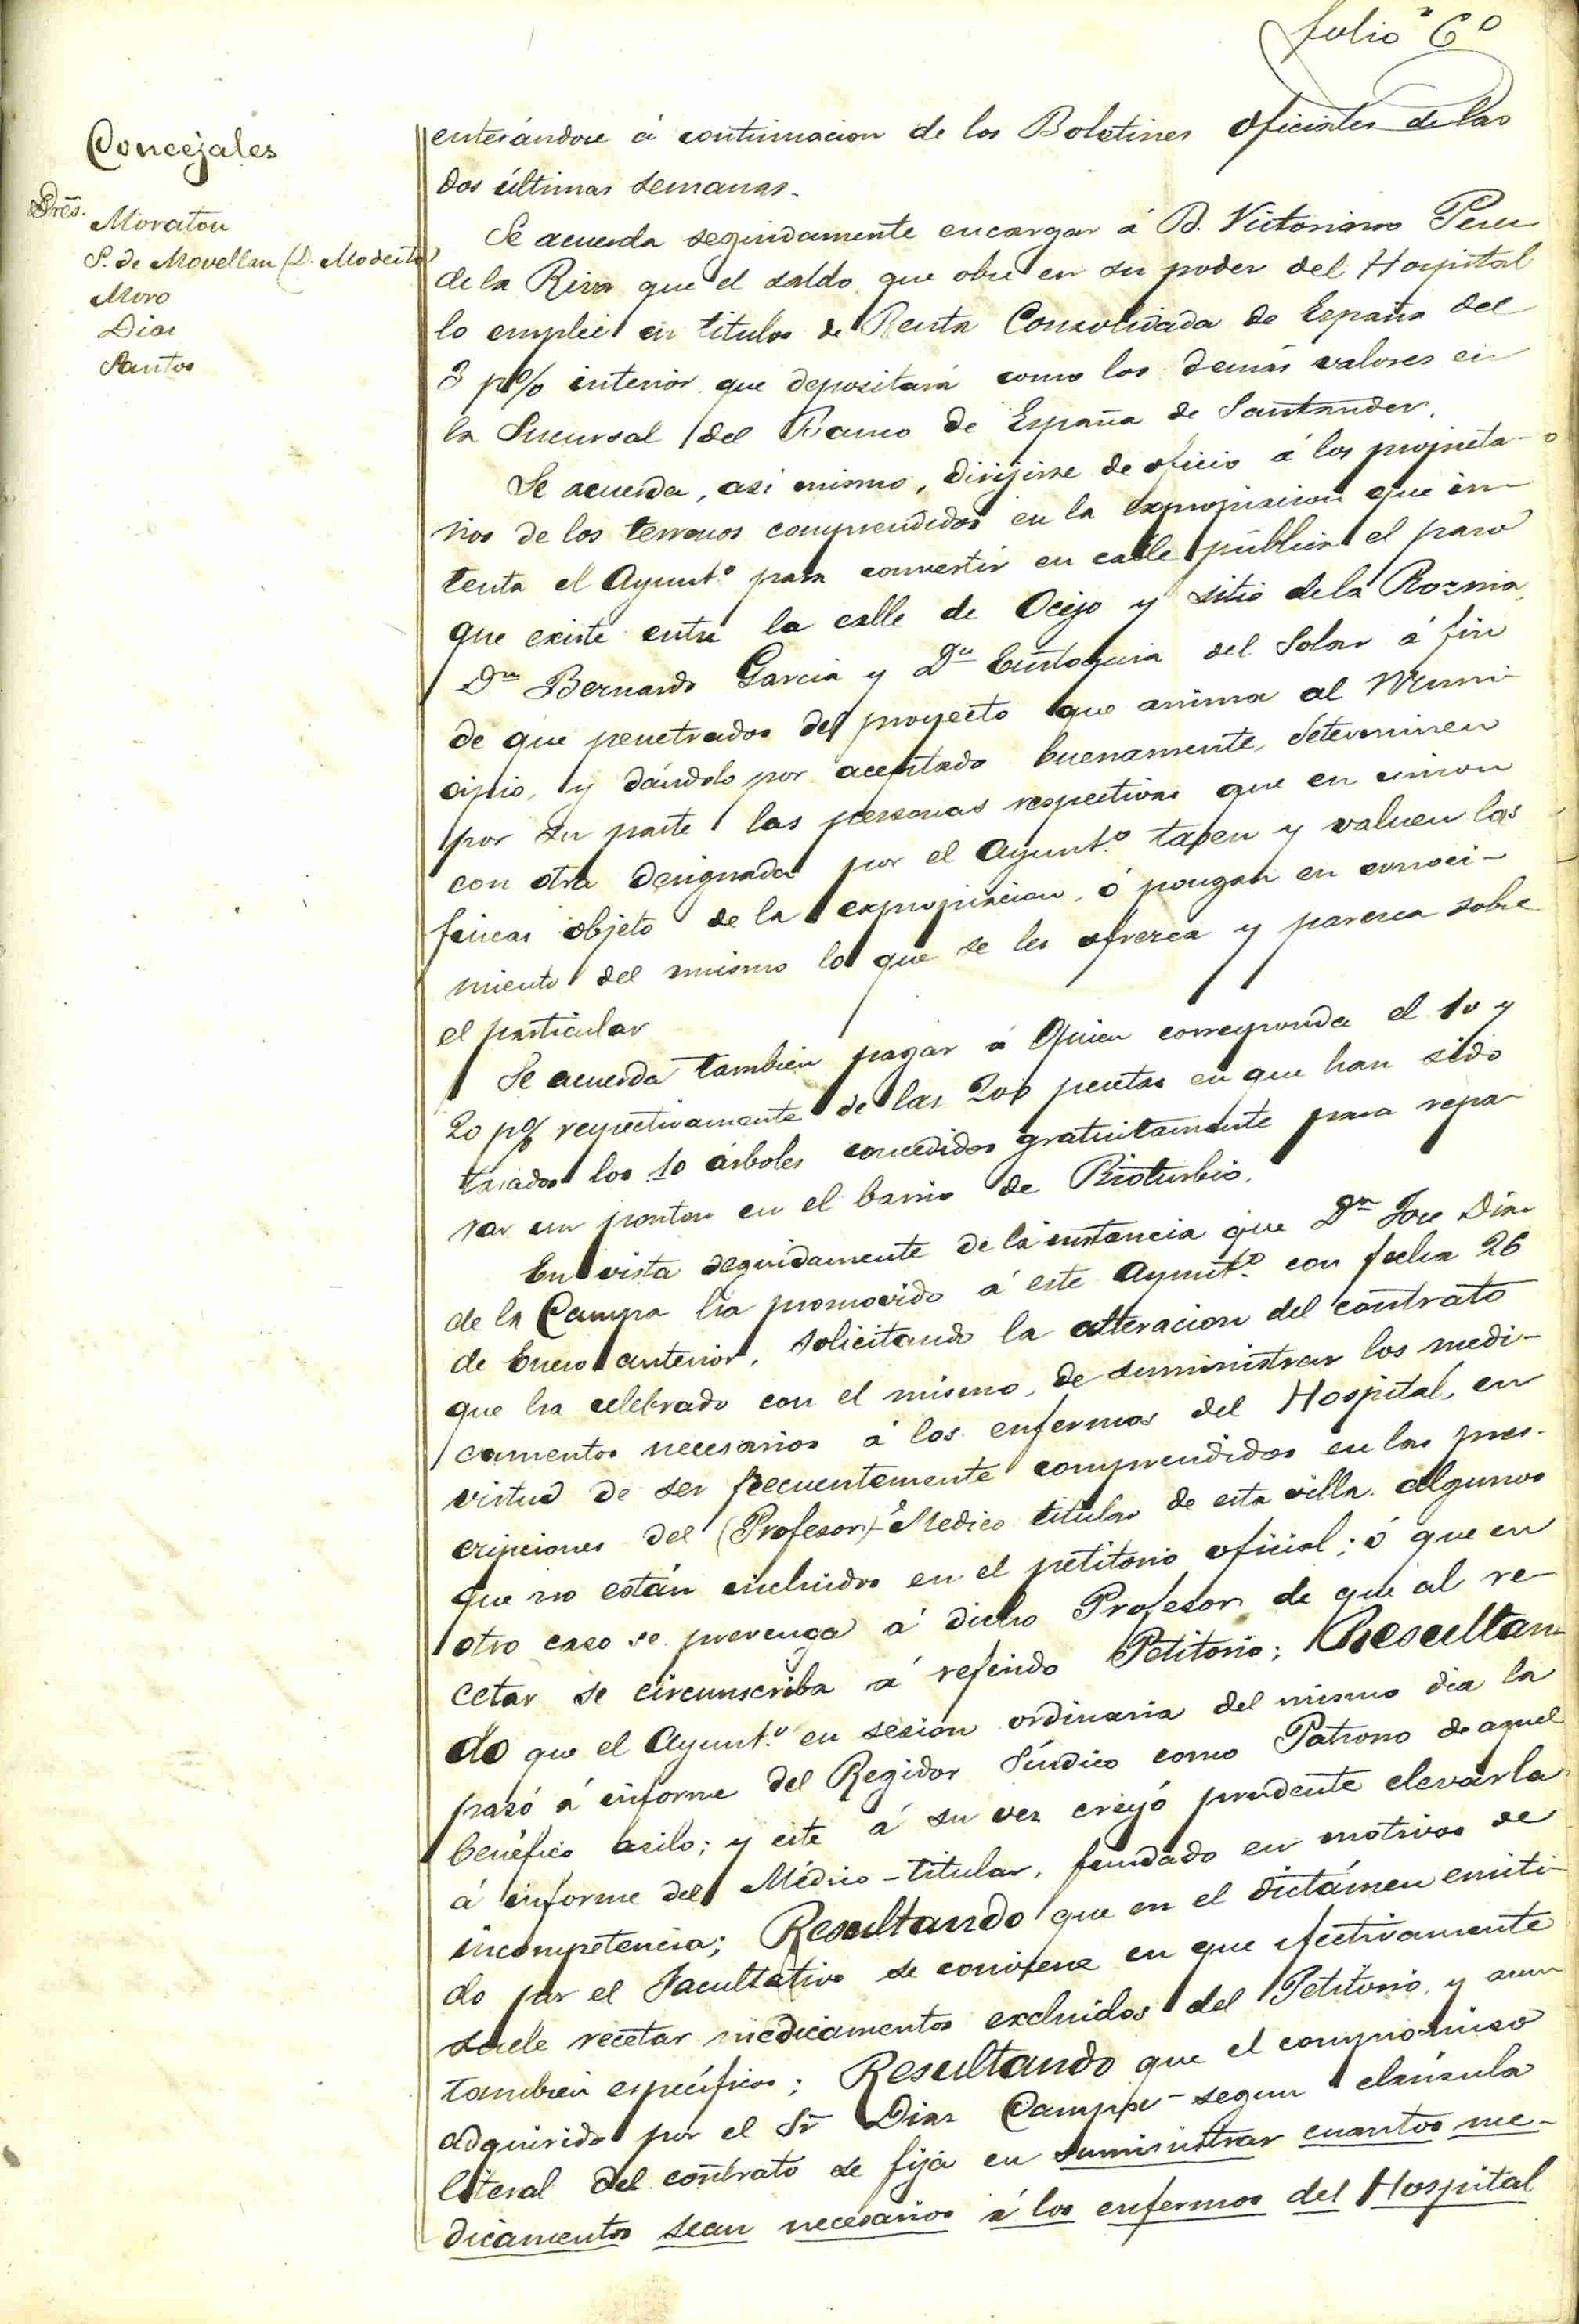 folio 6º
Concejales
Sres.
Moraton
S. de Movellan (D. Modesto)
Moro
Diaz
Santos
enterándose á continuacion de los Boletines oficiales de las
dos últimas semanas.
Se acuerda seguidamente encargar á D. Victoriano Perez
de la Riva que el saldo que obre en su poder del Hospital
lo emplee en titulos de Renta Consolidada de España del
3 p% interior que depositará como los demás valores en
la Sucursal del Banco de España de Santander.
Se acuerda, asi mismo, dirijirse de oficio á los propieta-
rios de los terrenos comprendidos en la expropiacion que in-
tenta el Ayuntº para convertir en calle pública el paso
que existe entre la calle de Ocejo y sitio de la
Dn Bernardo Garcia y Dª Eustoquia del Solar á fin
de que penetrados del proyecto que anima al Muni-
cipio, y dándolo por aceptado buenamente, determinen
por su parte las personas respectivas que en union
con otra designada por el Ayuntº tasen y valuen las
fincas objeto de la expropiacion, ó pongan en conoci-
miento del mismo lo que se les ofrezca y parezca sobre
el particular
Se acuerda tambien pagar á quien corresponda el 10 y
20 p% respectivamente de las 200 pesetas en que han sido
tasados los 10 árboles concedidos gratuitamente para repa-
rar un ponton en el barrio de Rioturbio.
En vista seguidamente de la instancia que Dn Jose Diaz
de la Campa ha promovido á este Ayuntº con fecha 26
de Enero anterior, solicitando la alteracion del contrato
que ha celebrado con el mismo, de suministrar los medi-
camentos necesarios á los enfermos del Hospital, en
virtud de ser frecuentemente comprendidos en las pres-
cripciones del (Profesor) Medico titular de esta villa algunos
que no están incluidos en el petitorio oficial; ó que en
otro caso se prevenga á dicho Profesor de que al re-
cetar se circunscriba á referido Petitorio; Resultan-
do que el Ayuntº en sesion ordinaria del mismo dia la
pasó á informe del Regidor Síndico como Patrono de aquel
benéfico asilo; y este á su vez creyó prudente elevarla
á informe del Médico-titular, fundado en motivos de
incompetencia; Resultando que en el dictámen emiti-
do por el Facultativo se conviene en que efectivamente
suele recetar medicamentos excluidos del Petitorio, y aun
tambien específicos; Resultando que el compromiso
adquirido por el Sr Diaz Campa segun cláusula
literal del contrato se fija en suministrar cuantos me-
dicamentos sean necesarios á los enfermos del Hospital